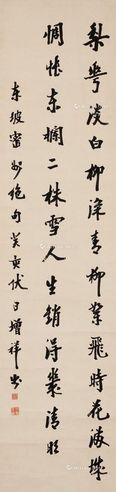 梨華淡白柳深青柳絮飛時花滿城
惆悵東欄二株雪人生銷得幾清明
東坡密州絕句癸亥伏日增祥書